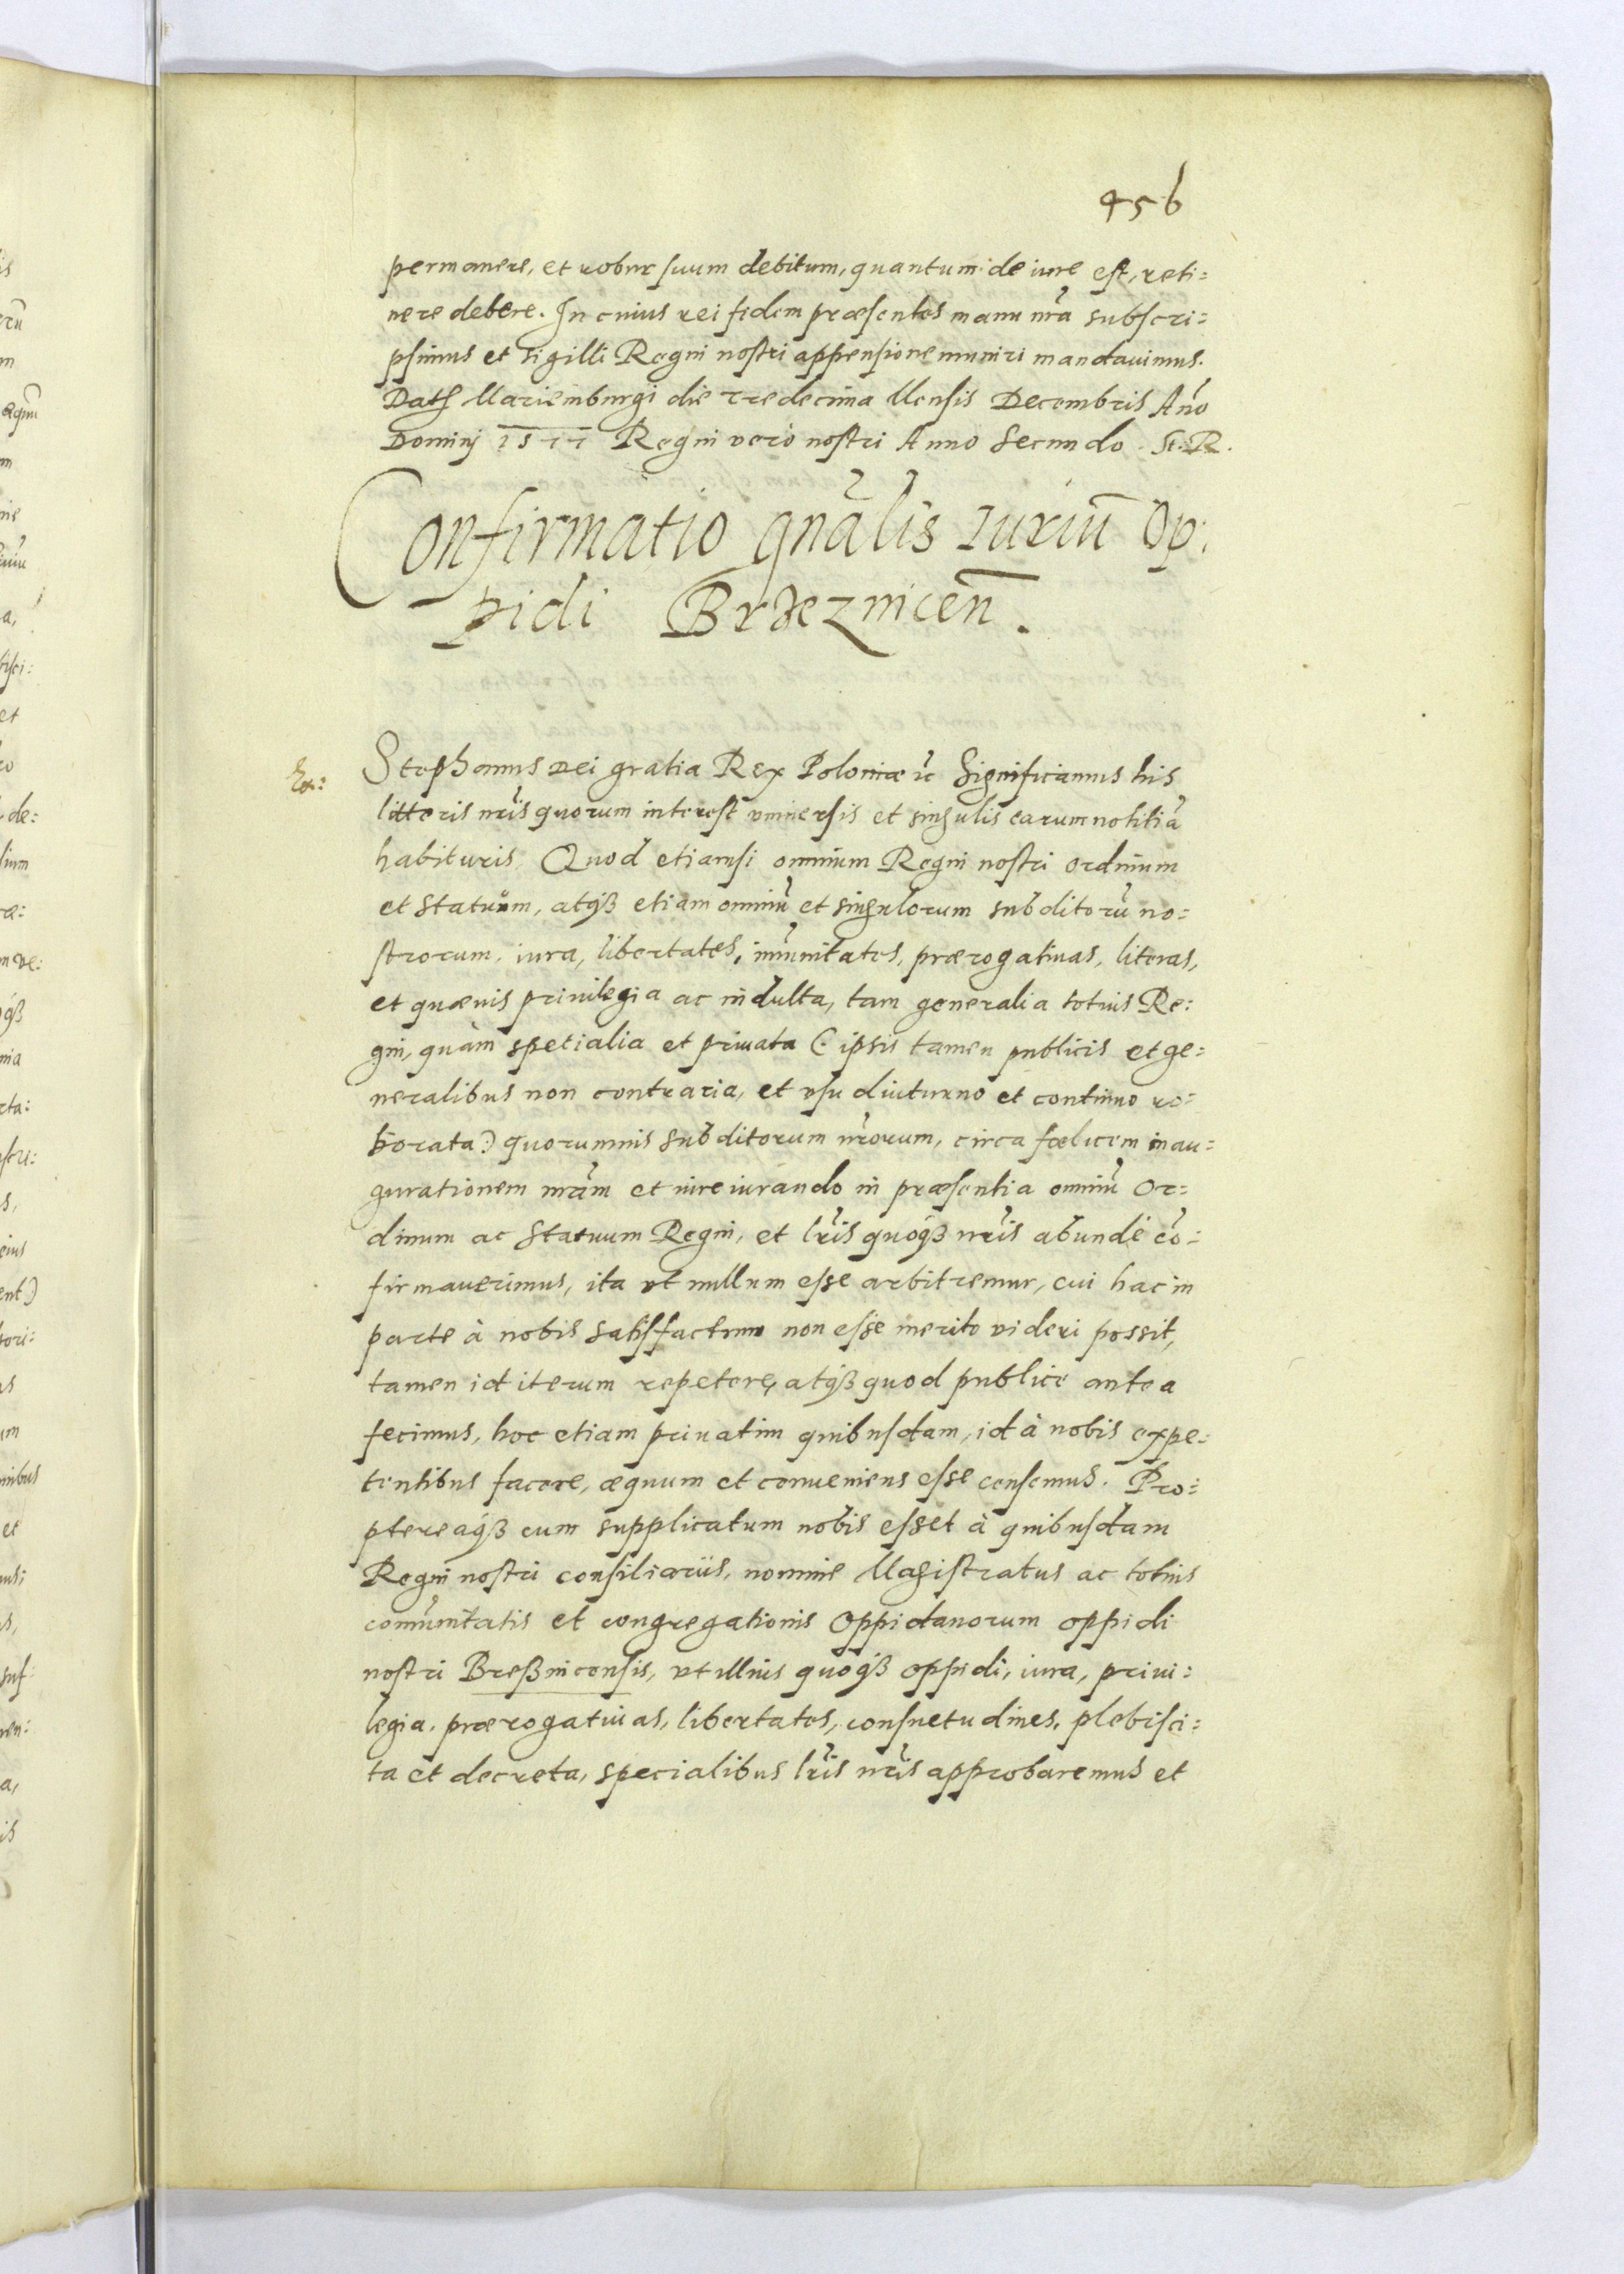 456
permanere, et robur suum debitum, quantum de iure est, reti=
nere debere. In cuius rei fidem præsentes manu nrã subscri=
psimus et sigilli Regni nostri appensione muniri mandauimus.
Dat Mariemburgi die tredecima Mensis Decembris Año
Dominj 1577 Regni vero nostri Anno Secundo. St. R.
Confirmatio gnãlis Iuriũ Op:
pidi Brzeznicen̄.
Ex:
Stephanus Dei gratia Rex Poloniæ ꝛc Significamus his
litteris nr̃is quorum interest vniuersis et singulis earum notitiã
habituris. Quod etiamsi omnium Regni nostri ordinum
et statuum, atqꝫ etiam omniũ et singulorum subditorũ no=
strorum, iura, libertates, im̃unitates, prærogatiuas, literas,
et quæuis priuilegia ac indulta, tam generalia totius Re:
gni, quàm spetialia et priuata (: ipsis tamen publicis et ge=
neralibus non contraria, et vsu diuturno et continuo ro=
borata:) quorumuis subditorum nr̃orum, circa fœlicem inau=
gurationem nrãm et iureiurando in præsentia omniũ Or=
dinum ac Statuum Regni, et lr̃is quoqꝫ nr̃is abundè cõ=
firmauerimus, ita vt nullum esse arbitremur, cui hac in
parte à nobis satisfactum non esse merito videri possit,
tamen id iterum repetere, atqꝫ quod publice antea
fecimus, hoc etiam priuatim quibusdam, id à nobis expe=
tentibus facere, æquum et conueniens esse censemus. Pro=
ptereaqꝫ cum supplicatum nobis esset à quibusdam
Regni nostri consiliariis, nomine Magistratus ac totius
com̃unitatis et congregationis Oppidanorum oppidi
nostri Breßnicensis, vt illius quoqꝫ oppidi, iura, priui=
legia, prærogatiuas, libertates, consuetudines, plebisci=
ta et decreta, specialibus lr̃is nr̃is approbaremus et